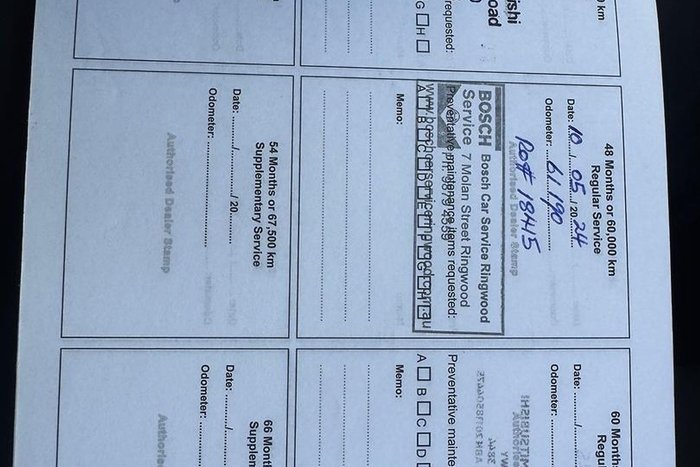 ishi
oad
0 km
requested:
G
H
48 Months or 60,000 km
Regular Service
Date: 10 / 05 / 20 24
Odometer: 61,190
Authorised Dealer Stamp
Ro# 18415
BOSCH Bosch Car Service Ringwood
Service 7 Molan Street Ringwood
Preventative maintenance items requested:
A B C D E F G H
Memo:
54 Months or 67,500 km
Supplementary Service
Date: ....../....../ 20......
Odometer:
Authorised Dealer Stamp
60 
Regu
Date:
Odometer:
Preventative mainte
A B C D
Memo:
66 Month
Supplem
Date: ....../
Odometer:
Authorised